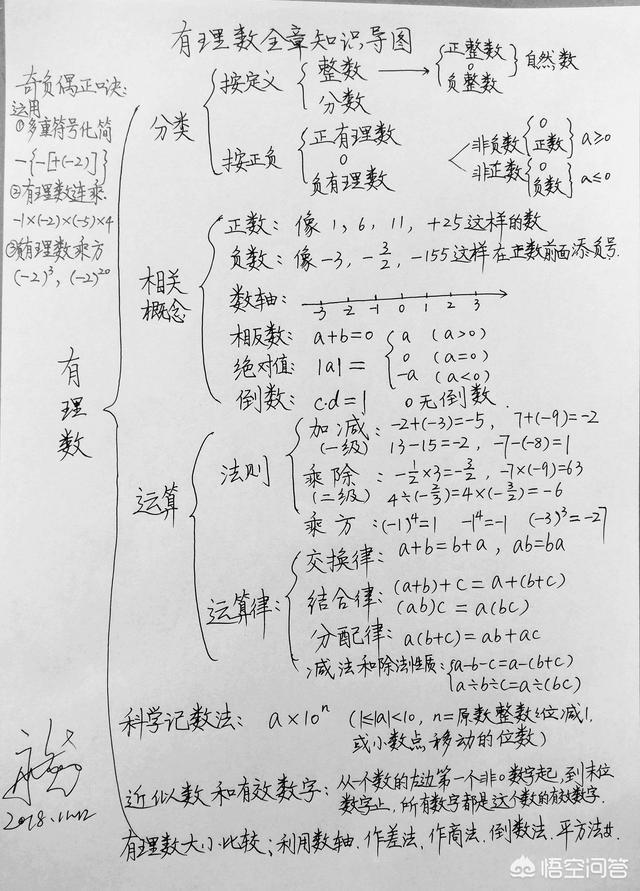 有理数全章知识导图
奇负偶正口诀:
运用
①多重符号化简
-{-[+(-2)]}
②有理数连乘
-1×(-2)×(-5)×4
③有理数乘方
(-2)³, (-2)²⁰
有理数
分类
按定义
整数
分数
正整数
0
负整数
自然数
按正负
正有理数
0
负有理数
非负数 0 正数 a≥0
非正数 0 负数 a≤0
相关概念
正数: 像 1, 6, 11, +25这样的数
负数: 像-3, -3/2, -155这样在正数前面添负号.
数轴: -3 -2 -1 0 1 2 3
相反数: a+b=0
绝对值: |a|=
a (a>0)
0 (a=0)
-a (a<0)
倒数: c·d=1 0无倒数.
运算
法则
加减: -2+(-3)=-5, 7+(-9)=-2
(一级) 13-15=-2, -7-(-8)=1
乘除: -1/2×3=-3/2, -7×(-9)=63
(二级) 4÷(-2/3)=4×(-3/2)=-6
乘方: (-1)⁴=1 -1⁴=-1 (-3)³=-27
运算律:
交换律: a+b=b+a, ab=ba
结合律: (a+b)+c=a+(b+c)
(ab)c=a(bc)
分配律: a(b+c)=ab+ac
减法和除法性质: a-b-c=a-(b+c)
a÷b÷c=a÷(bc)
科学记数法: a×10ⁿ (1≤|a|<10, n=原数整数位减1,
或小数点移动的位数)
近似数和有效数字: 从一个数的左边第一个非0数字起,到末位
数字止,所有数字都是这个数的有效数字.
有理数大小比较: 利用数轴、作差法、作商法、倒数法、平方法
2018.11.12
悟空问答